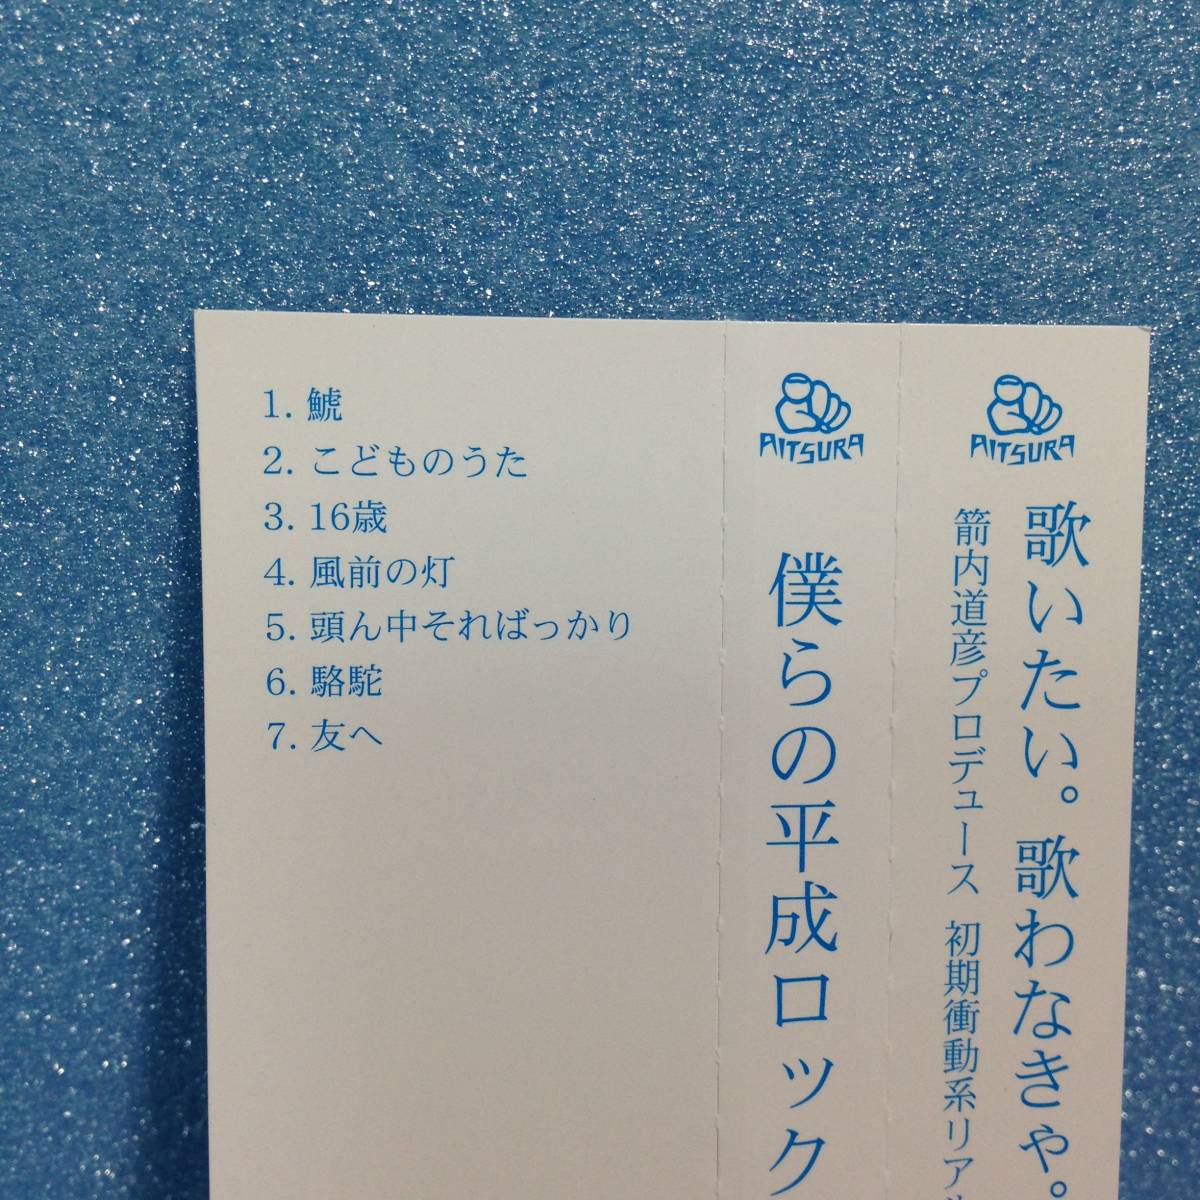 1. 鯱
2. こどものうた
3. 16歳
4. 風前の灯
5. 頭ん中そればっかり
6. 駱駝
7. 友へ
AITSURA
僕らの平成ロック
AITSURA
歌いたい。歌わなきゃ。
箭内道彦プロデュース 初期衝動系リア